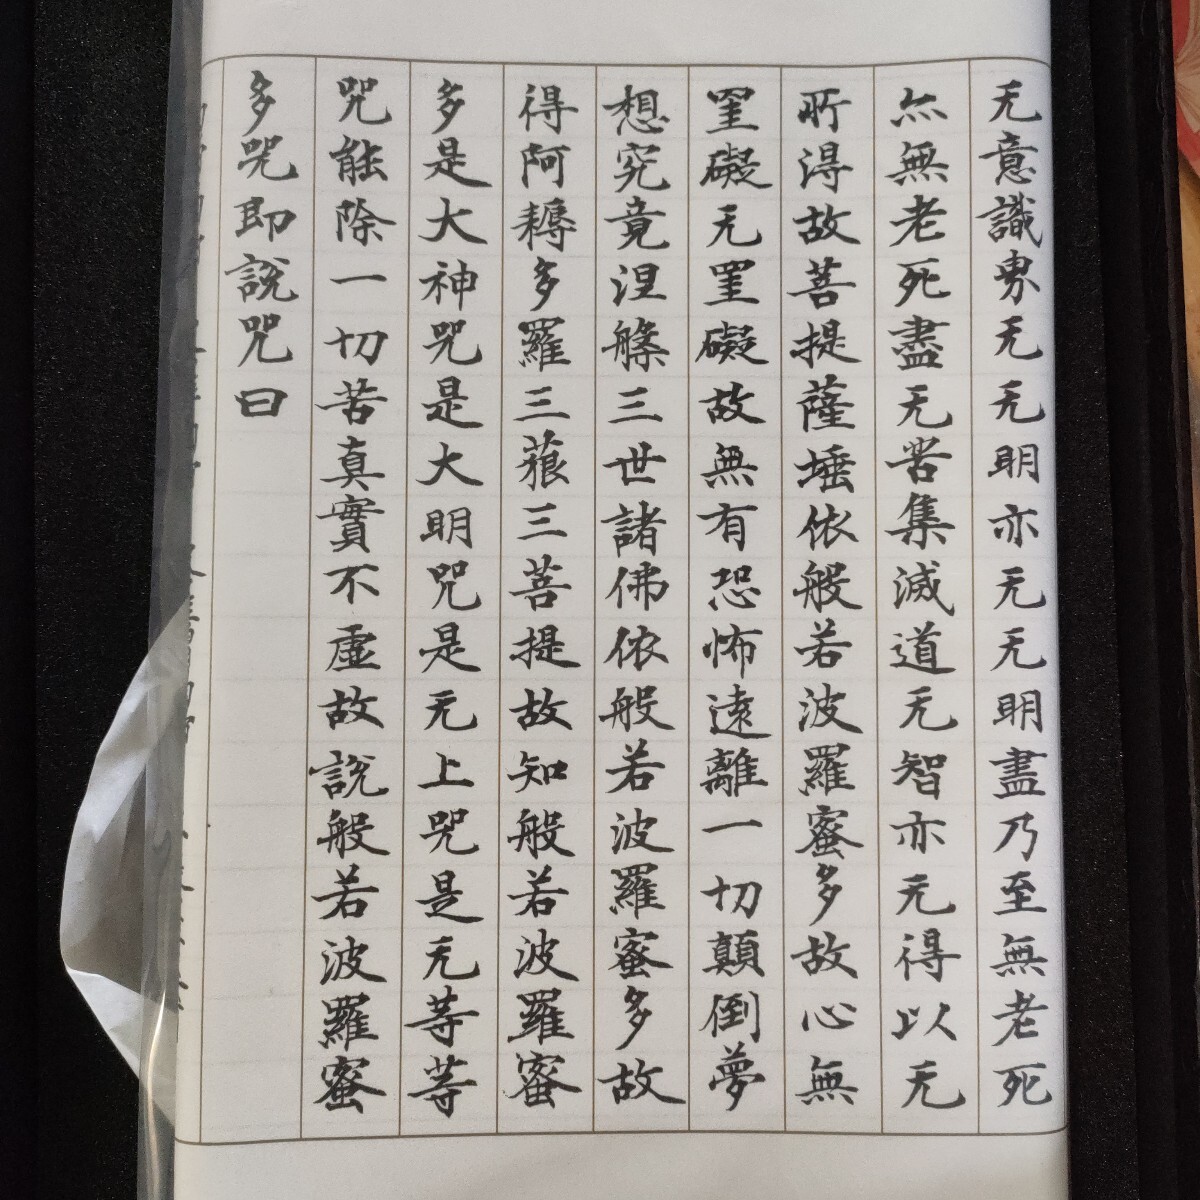 无意識界无无明亦无无明盡乃至無老死
亦無老死盡无苦集滅道无智亦无得以无
所得故菩提薩埵依般若波羅蜜多故心無
罣礙无罣礙故無有恐怖遠離一切顛倒夢
想究竟涅槃三世諸佛依般若波羅蜜多故
得阿耨多羅三藐三菩提故知般若波羅蜜
多是大神咒是大明咒是无上咒是无等等
咒能除一切苦真實不虛故説般若波羅蜜
多咒即説咒曰